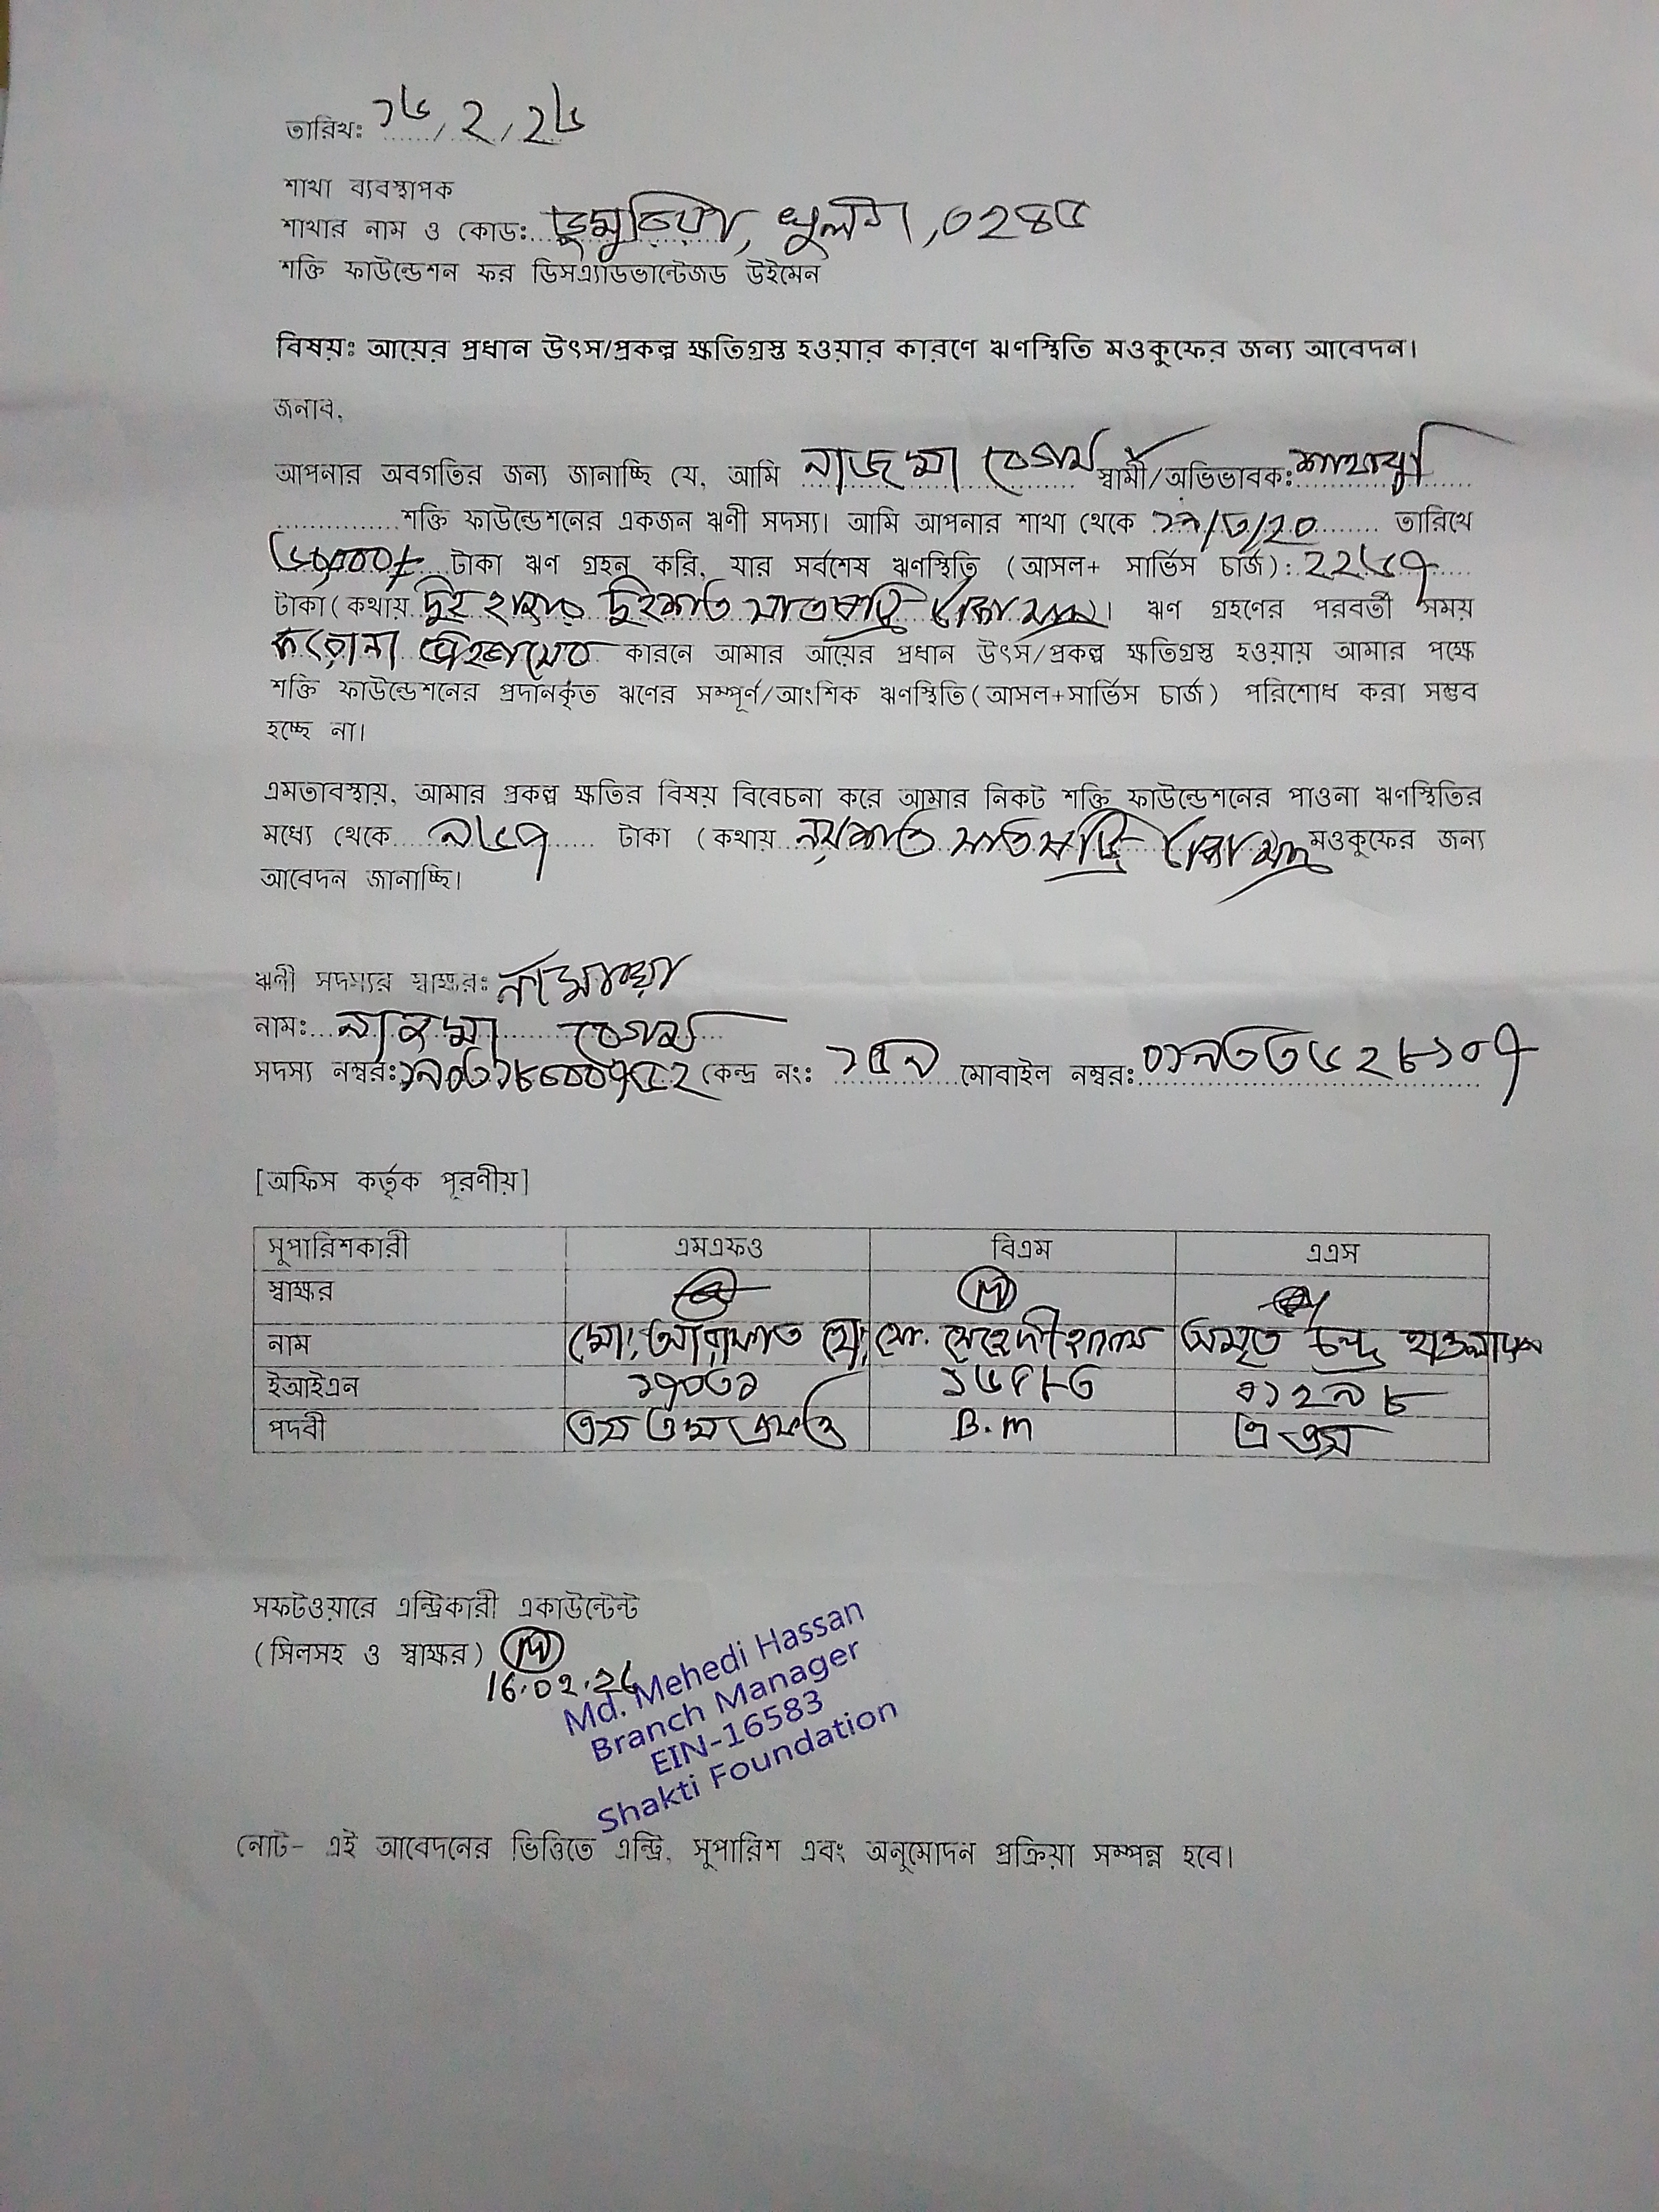 তারিখঃ ১৬/২/২৬
শাখা ব্যবস্থাপক
শাখার নাম ও কোডঃ ডুমুরিয়া, খুলনা, ০২৪৫
শক্তি ফাউন্ডেশন ফর ডিসএ্যাডভান্টেজড উইমেন
বিষয়ঃ আয়ের প্রধান উৎস/প্রকল্প ক্ষতিগ্রস্ত হওয়ার কারণে ঋণস্থিতি মওকুফের জন্য আবেদন।
জনাব,
আপনার অবগতির জন্য জানাচ্ছি যে, আমি নাজমা বেগম স্বামী/অভিভাবক:
শক্তি ফাউন্ডেশনের একজন ঋণী সদস্য। আমি আপনার শাখা থেকে তারিখে
টাকা ঋণ গ্রহন করি, যার সর্বশেষ ঋণস্থিতি (আসল+ সার্ভিস চার্জ): ২২৬৭
টাকা (কথায় দুই হাজার দুইশত সাতষট্টি টাকা মাত্র। ঋণ গ্রহণের পরবর্তী সময়
করোনা কারনে আমার আয়ের প্রধান উৎস/প্রকল্প ক্ষতিগ্রস্ত হওয়ায় আমার পক্ষে
শক্তি ফাউন্ডেশনের প্রদানকৃত ঋণের সম্পূর্ণ/আংশিক ঋণস্থিতি(আসল+সার্ভিস চার্জ) পরিশোধ করা সম্ভব
হচ্ছে না।
এমতাবস্থায়, আমার প্রকল্প ক্ষতির বিষয় বিবেচনা করে আমার নিকট শক্তি ফাউন্ডেশনের পাওনা ঋণস্থিতির
মধ্যে থেকে ৯৬৭ টাকা (কথায় নয়শত সাতষট্টি টাকা মাত্র মওকুফের জন্য
আবেদন জানাচ্ছি।
ঋণী সদস্যর স্বাক্ষরঃ
নামঃ নাজমা বেগম
সদস্য নম্বরঃ কেন্দ্র নংঃ ১৫৯ মোবাইল নম্বরঃ ০১৯৩৩৬২৮১০৭
[অফিস কর্তৃক পূরণীয়]
সুপারিশকারী এমএফও বিএম এএস
স্বাক্ষর
নাম মো: আরাফাত মো. মেহেদী হাসান অমৃত চন্দ্র
ইআইএন ১৭০৩১ ১৬৫৮৩ ০১২৯৮
পদবী B.M
সফটওয়ারে এন্ট্রিকারী একাউন্টেন্ট
(সিলসহ ও স্বাক্ষর)
16.02.26
Md. Mehedi Hassan
Branch Manager
EIN-16583
Shakti Foundation
নোট- এই আবেদনের ভিত্তিতে এন্ট্রি, সুপারিশ এবং অনুমোদন প্রক্রিয়া সম্পন্ন হবে।